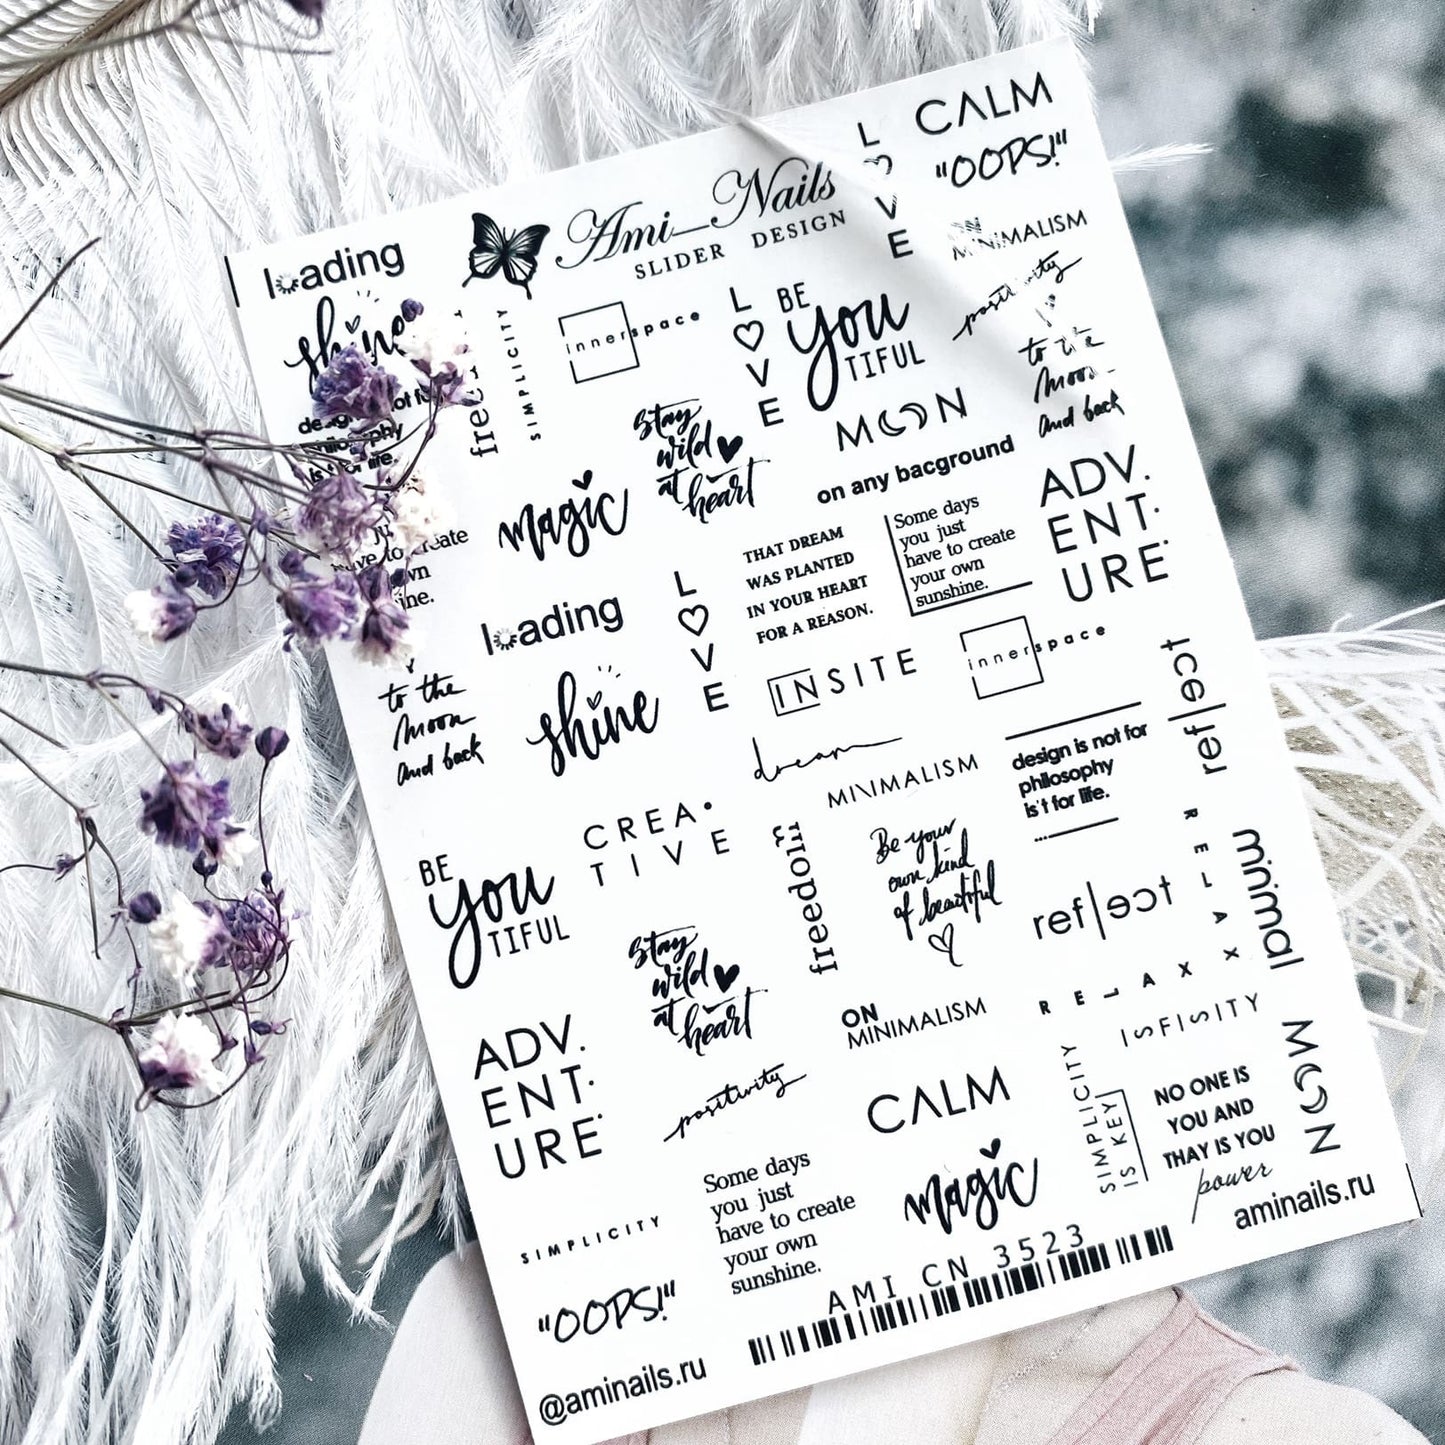 CALM
"OOPS!"
L
O
V
E
Ami_Nails
SLIDER DESIGN
loading
shine
MINIMALISM
positivity
to the
Moon
And back
SIMPLICITY
innerspace
L
V
E
BE
you
TIFUL
MOON
on any bacground
stay
wild
at
heart
magic
ADV.
ENT.
URE.
THAT DREAM
WAS PLANTED
IN YOUR HEART
FOR A REASON.
Some days
you just
have to create
your own
sunshine.
is for life.
loading
L
V
E
INSITE
innerspace
reflect
to the
Moon
And back
shine
dream
MINIMALISM
design is not for
philosophy
is't for life.
....
CREA.
TIVE
BE
you
TIFUL
freedom
Be your
own kind
of beautiful
reflect
RELAXX
minimal
stay
wild
at
heart
ON
MINIMALISM
RELAXX
INFINITY
ADV.
ENT.
URE.
positivity
CALM
SIMPLICITY
IS KEY
NO ONE IS
YOU AND
THAY IS YOU
power
MOON
Some days
you just
have to create
your own
sunshine.
magic
aminails.ru
SIMPLICITY
"OOPS!"
AMI CN 3523
@aminails.ru